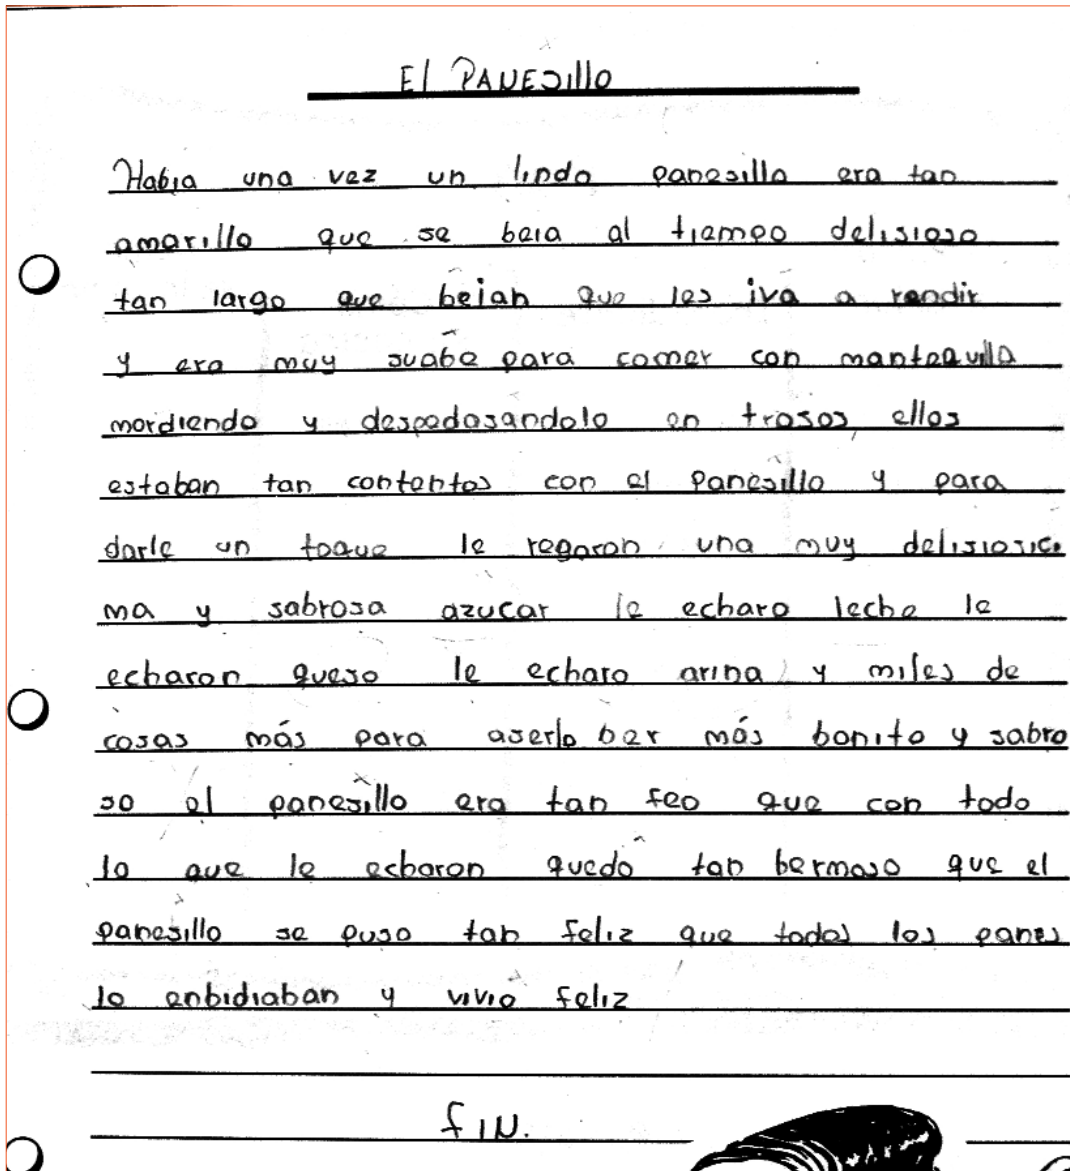 El PANESillo
Habia una vez un lindo panesillo era tan
amarillo que se beia al tiempo delisioso
tan largo que beian que les iva a rendir
y era muy suabe para comer con mantequilla
mordiendo y despedasandolo en trosos, ellos
estaban tan contentos con el panesillo y para
darle un toque le regaron una muy delisiosic
ma y sabrosa azucar le echaro leche le
echaron queso le echaro arina y miles de
cosas más para aserlo ber más bonito y sabro
so el panesillo era tan feo que con todo
lo que le echaron quedo tan hermoso que el
panesillo se puso tan feliz que todos los panes
lo enbidiaban y vivio feliz
fIN.